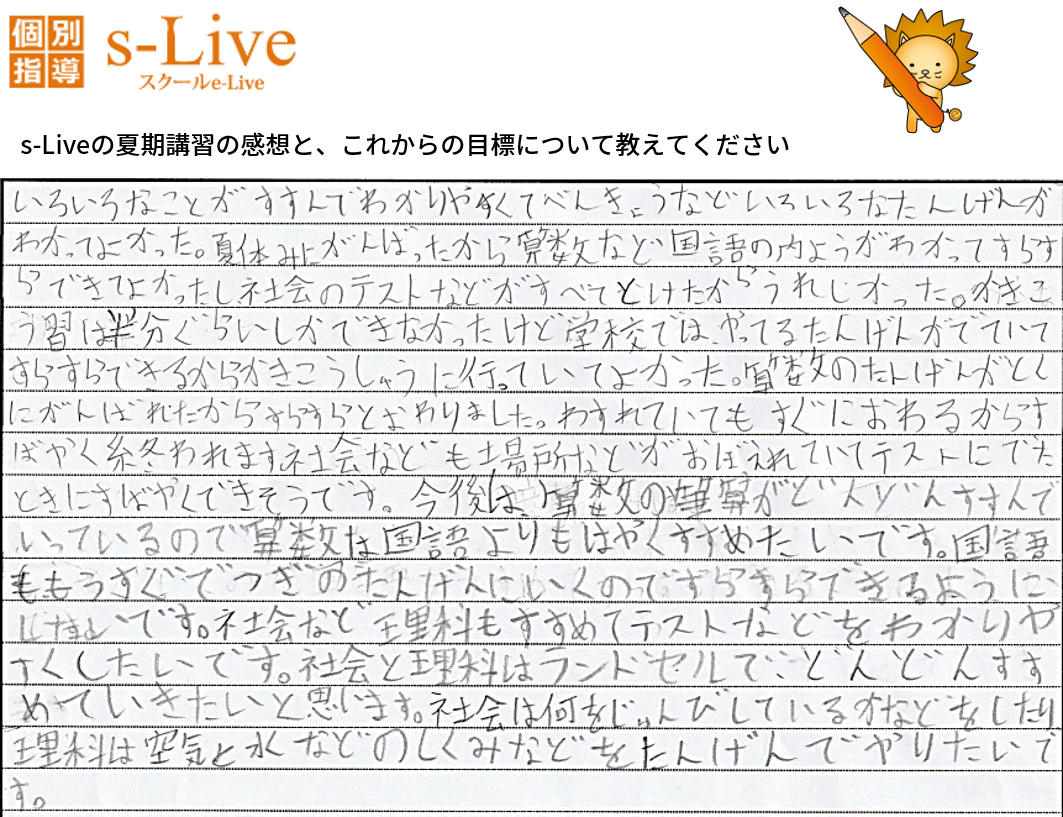 個別
指導
s-Live
スクールe-Live
s-Liveの夏期講習の感想と、これからの目標について教えてください
いろいろなことがすすんでわかりやすくてべんきょうなどいろいろなたんげんが
わかってよかった。夏休みにがんばったから算数など国語の内ようがわかってすらす
らできてよかったし社会のテストなどがすべてとけたからうれしかった。かきこ
う習は半分ぐらいしかできなかったけど学校では、やってるたんげんがでていて
すらすらできるからかきこうしゅうに行っていてよかった。算数のたんげんがとく
にがんばれたからすらすらとおわりました。わすれていてもすぐにおわるからす
ばやく終われます社会なども場所などがおぼえれていてテストにでた
ときにすばやくできそうです。今後は算数の筆算がどんどんすすんで
いっているので算数は国語よりもはやくすすめたいです。国語
ももうすぐでつぎのたんげんにいくのですらすらできるように
です。社会など理科もすすめてテストなどをわかりや
すくしたいです。社会と理科はランドセルで、どんどんすす
めていきたいと思じます。社会は何をじゅんびしているかなどをしたり
理科は空気と水などのしくみなどをたんげんでやりたいで
す。